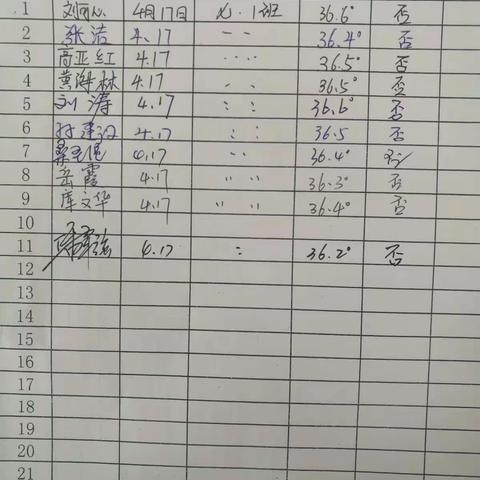 1 刘丽心 4月17日 九.1班 36.6° 否
2 张洁 4.17 〃 36.4° 否
3 高亚红 4.17 〃 36.5° 否
4 黄海林 4.17 〃 36.5° 否
5 刘涛 4.17 〃 36.6° 否
6 4.17 〃 36.5 否
7 4.17 〃 36.4° 否
8 岳霞 4.17 〃 36.3° 否
9 库文华 4.17 〃 36.4° 否
10
11 4.17 〃 36.2° 否
12
13
14
15
16
17
18
19
20
21